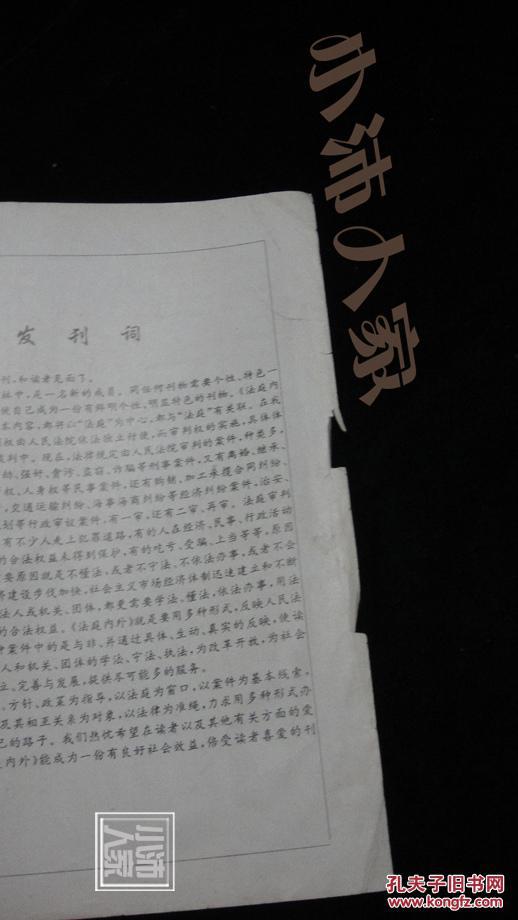 小沛人家
发刊词
刊,和读者见面了。
林中,是一名新的成员。同任何刊物需要个性、特色一
使自己成为一份有鲜明个性,明显特色的刊物。《法庭内
本内容,都将以“法庭”为中心,都与“法庭”有关联。在我
判权由人民法院依法独立行使,而审判权的实施,具体体
裁判中。现在,法律规定由人民法院审判的案件,种类多,
劫、强奸、贪污、盗窃、诈骗等刑事案件,又有离婚、继承、
权、人身权等民事案件,还有购销、加工承揽合同纠纷、
交通运输纠纷、海事海商纠纷等经济纠纷案件,治安、
划等行政审议案件,有一审,还有二审、再审。法庭审判
有不少人走上犯罪道路,有的人在经济、民事、行政活动
的合法权益未得到保护,有的吃亏、受骗、上当等等,原因
要原因就是不懂法,或者不守法、不依法办事,或者不会
济建设步伐加快,社会主义市场经济体制迅速建立和不断
法人或机关、团体,都更需要学法、懂法,依法办事,用法
的合法权益。《法庭内外》就是要用多种形式,反映人民法
种案件中的是与非,并通过具体、生动、真实的反映,使读
人和机关、团体的学法、守法、执法,为改革开放,为社会
立、完善与发展,提供尽可能多的服务。
、方针、政策为指导,以法庭为窗口,以案件为基本线索,
及其相互关系为对象,以法律为准绳,力求用多种形式办
己的路子。我们热忱希望在读者以及其他有关方面的爱
庭内外》能成为一份有良好社会效益,倍受读者喜爱的刊
小沛人家
孔夫子旧书网
www.kongfz.com